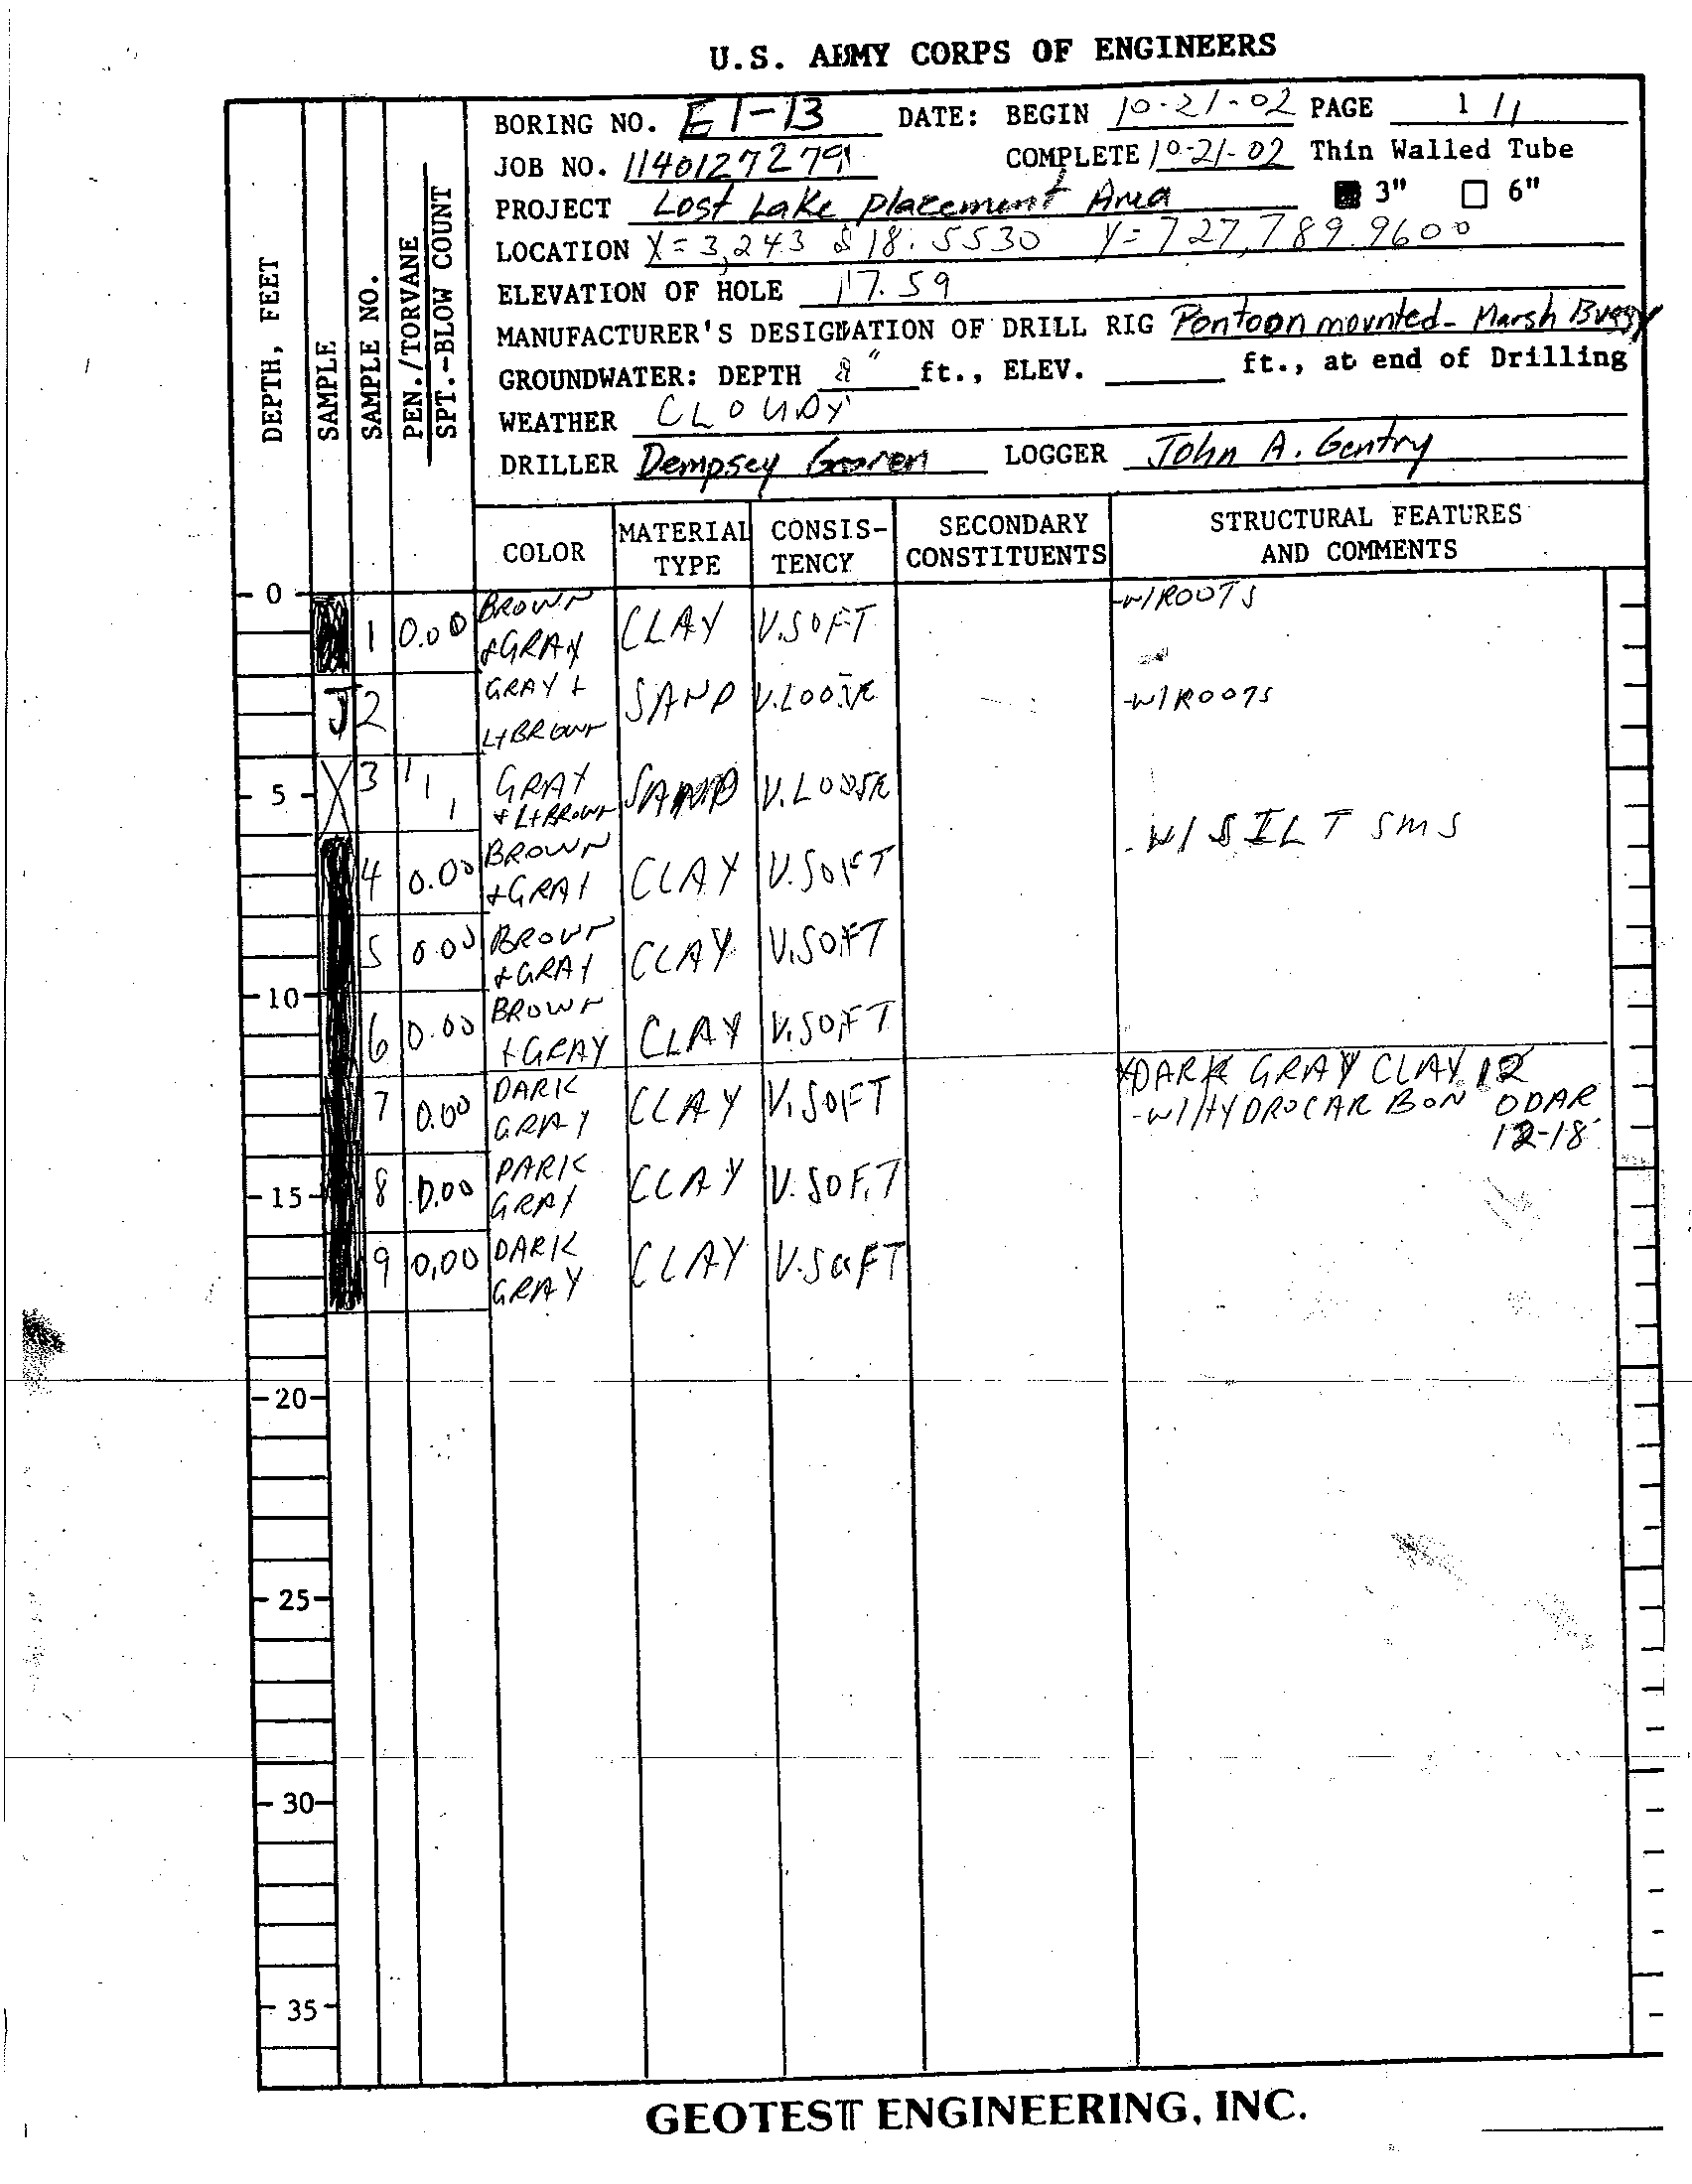 U.S. ARMY CORPS OF ENGINEERS
BORING NO. E1-13 DATE: BEGIN 10-21-02 PAGE 1 / 1
JOB NO. 1140127279 COMPLETE 10-21-02 Thin Walled Tube
PROJECT Lost Lake placement Area 3" 6"
LOCATION X = 3,243 818.5530 Y = 727,789.9600
ELEVATION OF HOLE 17.59
MANUFACTURER'S DESIGNATION OF DRILL RIG Pontoon mounted - Marsh Buggy
GROUNDWATER: DEPTH 8" ft., ELEV. ft., at end of Drilling
WEATHER CLOUDY
DRILLER Dempsey LOGGER John A. Gentry
DEPTH, FEET
SAMPLE
SAMPLE NO.
PEN./TORVANE
SPT.-BLOW COUNT
COLOR MATERIAL TYPE CONSIS-TENCY SECONDARY CONSTITUENTS STRUCTURAL FEATURES AND COMMENTS
0
1 0.00 BROWN +GRAY CLAY V.SOFT -W/ROOTS
J 2 GRAY + LT BROWN SAND V.LOOSE -W/ROOTS
5
3 1 1 1 GRAY + LT BROWN SAND V.LOOSE
-W/ SILT SMS
4 0.00 BROWN +GRAY CLAY V.SOFT
5 0.00 BROWN +GRAY CLAY V.SOFT
10
6 0.00 BROWN +GRAY CLAY V.SOFT
7 0.00 DARK GRAY CLAY V.SOFT DARK GRAY CLAY 12
-W/HYDROCARBON ODAR
12-18
15
8 0.00 DARK GRAY CLAY V.SOFT
9 0.00 DARK GRAY CLAY V.SOFT
20
25
30
35
GEOTEST ENGINEERING, INC.